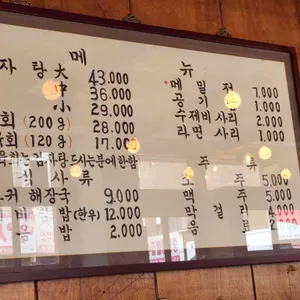 메 뉴
자 탕 大 43.000
中 36.000
小 29.000
회 (200g) 28.000
회 (120g) 17.000
사 류
해장국 9.000
비 밥 (한우) 12.000
밥 2.000
메 밀 전 7.000
공 기 1.000
수 제 비 사 리 2.000
라 면 사 리 1.000
주 류
소 주 5.000
맥 주 5.000
막 걸 리 4.000
음 료 2.000